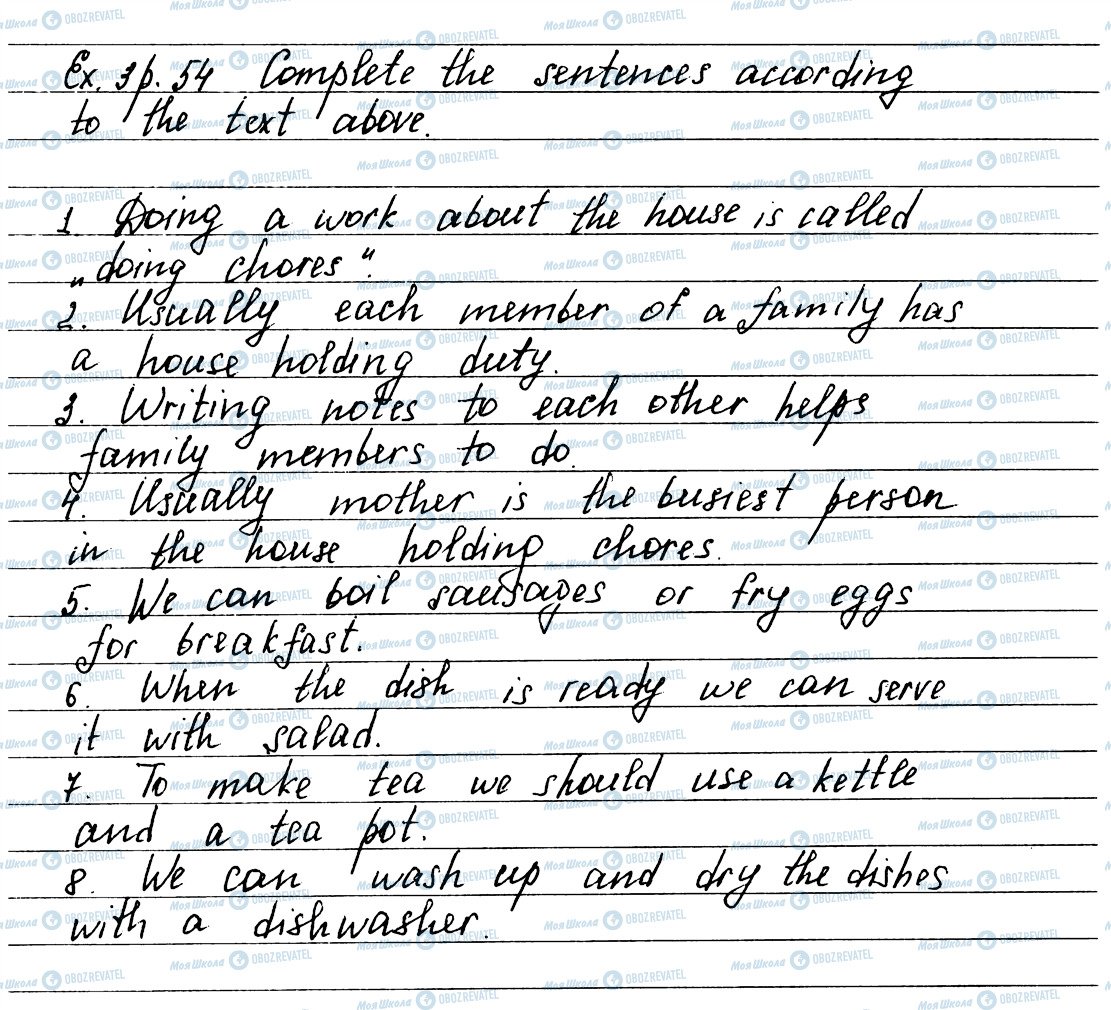 Ex. 3 p. 54 Complete the sentences according
to the text above.
1. Doing a work about the house is called
„doing chores“.
2. Usually each member of a family has
a house holding duty.
3. Writing notes to each other helps
family members to do.
4. Usually mother is the busiest person
in the house holding chores.
5. We can boil sausages or fry eggs
for breakfast.
6. When the dish is ready we can serve
it with salad.
7. To make tea we should use a kettle
and a tea pot.
8. We can wash up and dry the dishes
with a dishwasher.